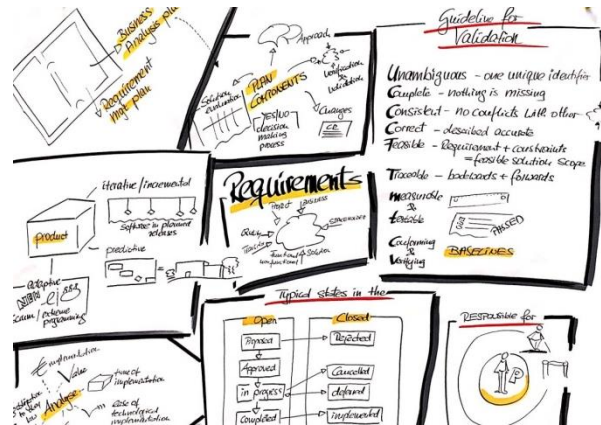 Business
Analysis plan
Requirement
mgt plan
Approach
PLAN
COMPONENTS
Verification
&
Validation
Solution
evaluation
YES/NO
decision
making
process
Changes
CR
Guideline for
Validation
Unambiguous - one unique identifier
Complete - nothing is missing
Consistent - no conflicts with other
Correct - described accurate
Feasible - Requirement + constraints
= feasible solution scope
Traceable - backwards + forwards
measurable
&
testable
PASSED
Conforming
&
Verifying
BASELINES
iterative/incremental
software in planned
releases
product
predictive
adaptive
/extreme
programming
Requirements
Project
Business
Stakeholder
Quality
Transition
Functional
nonfunctional
Solution
Typical states in the
Open
Closed
Proposed
Rejected
Approved
Cancelled
in progress
deferred
Completed
implemented
RESPonsible for
Implementation
Value
time of
implementation
Analyse
ease of
technological
implementation